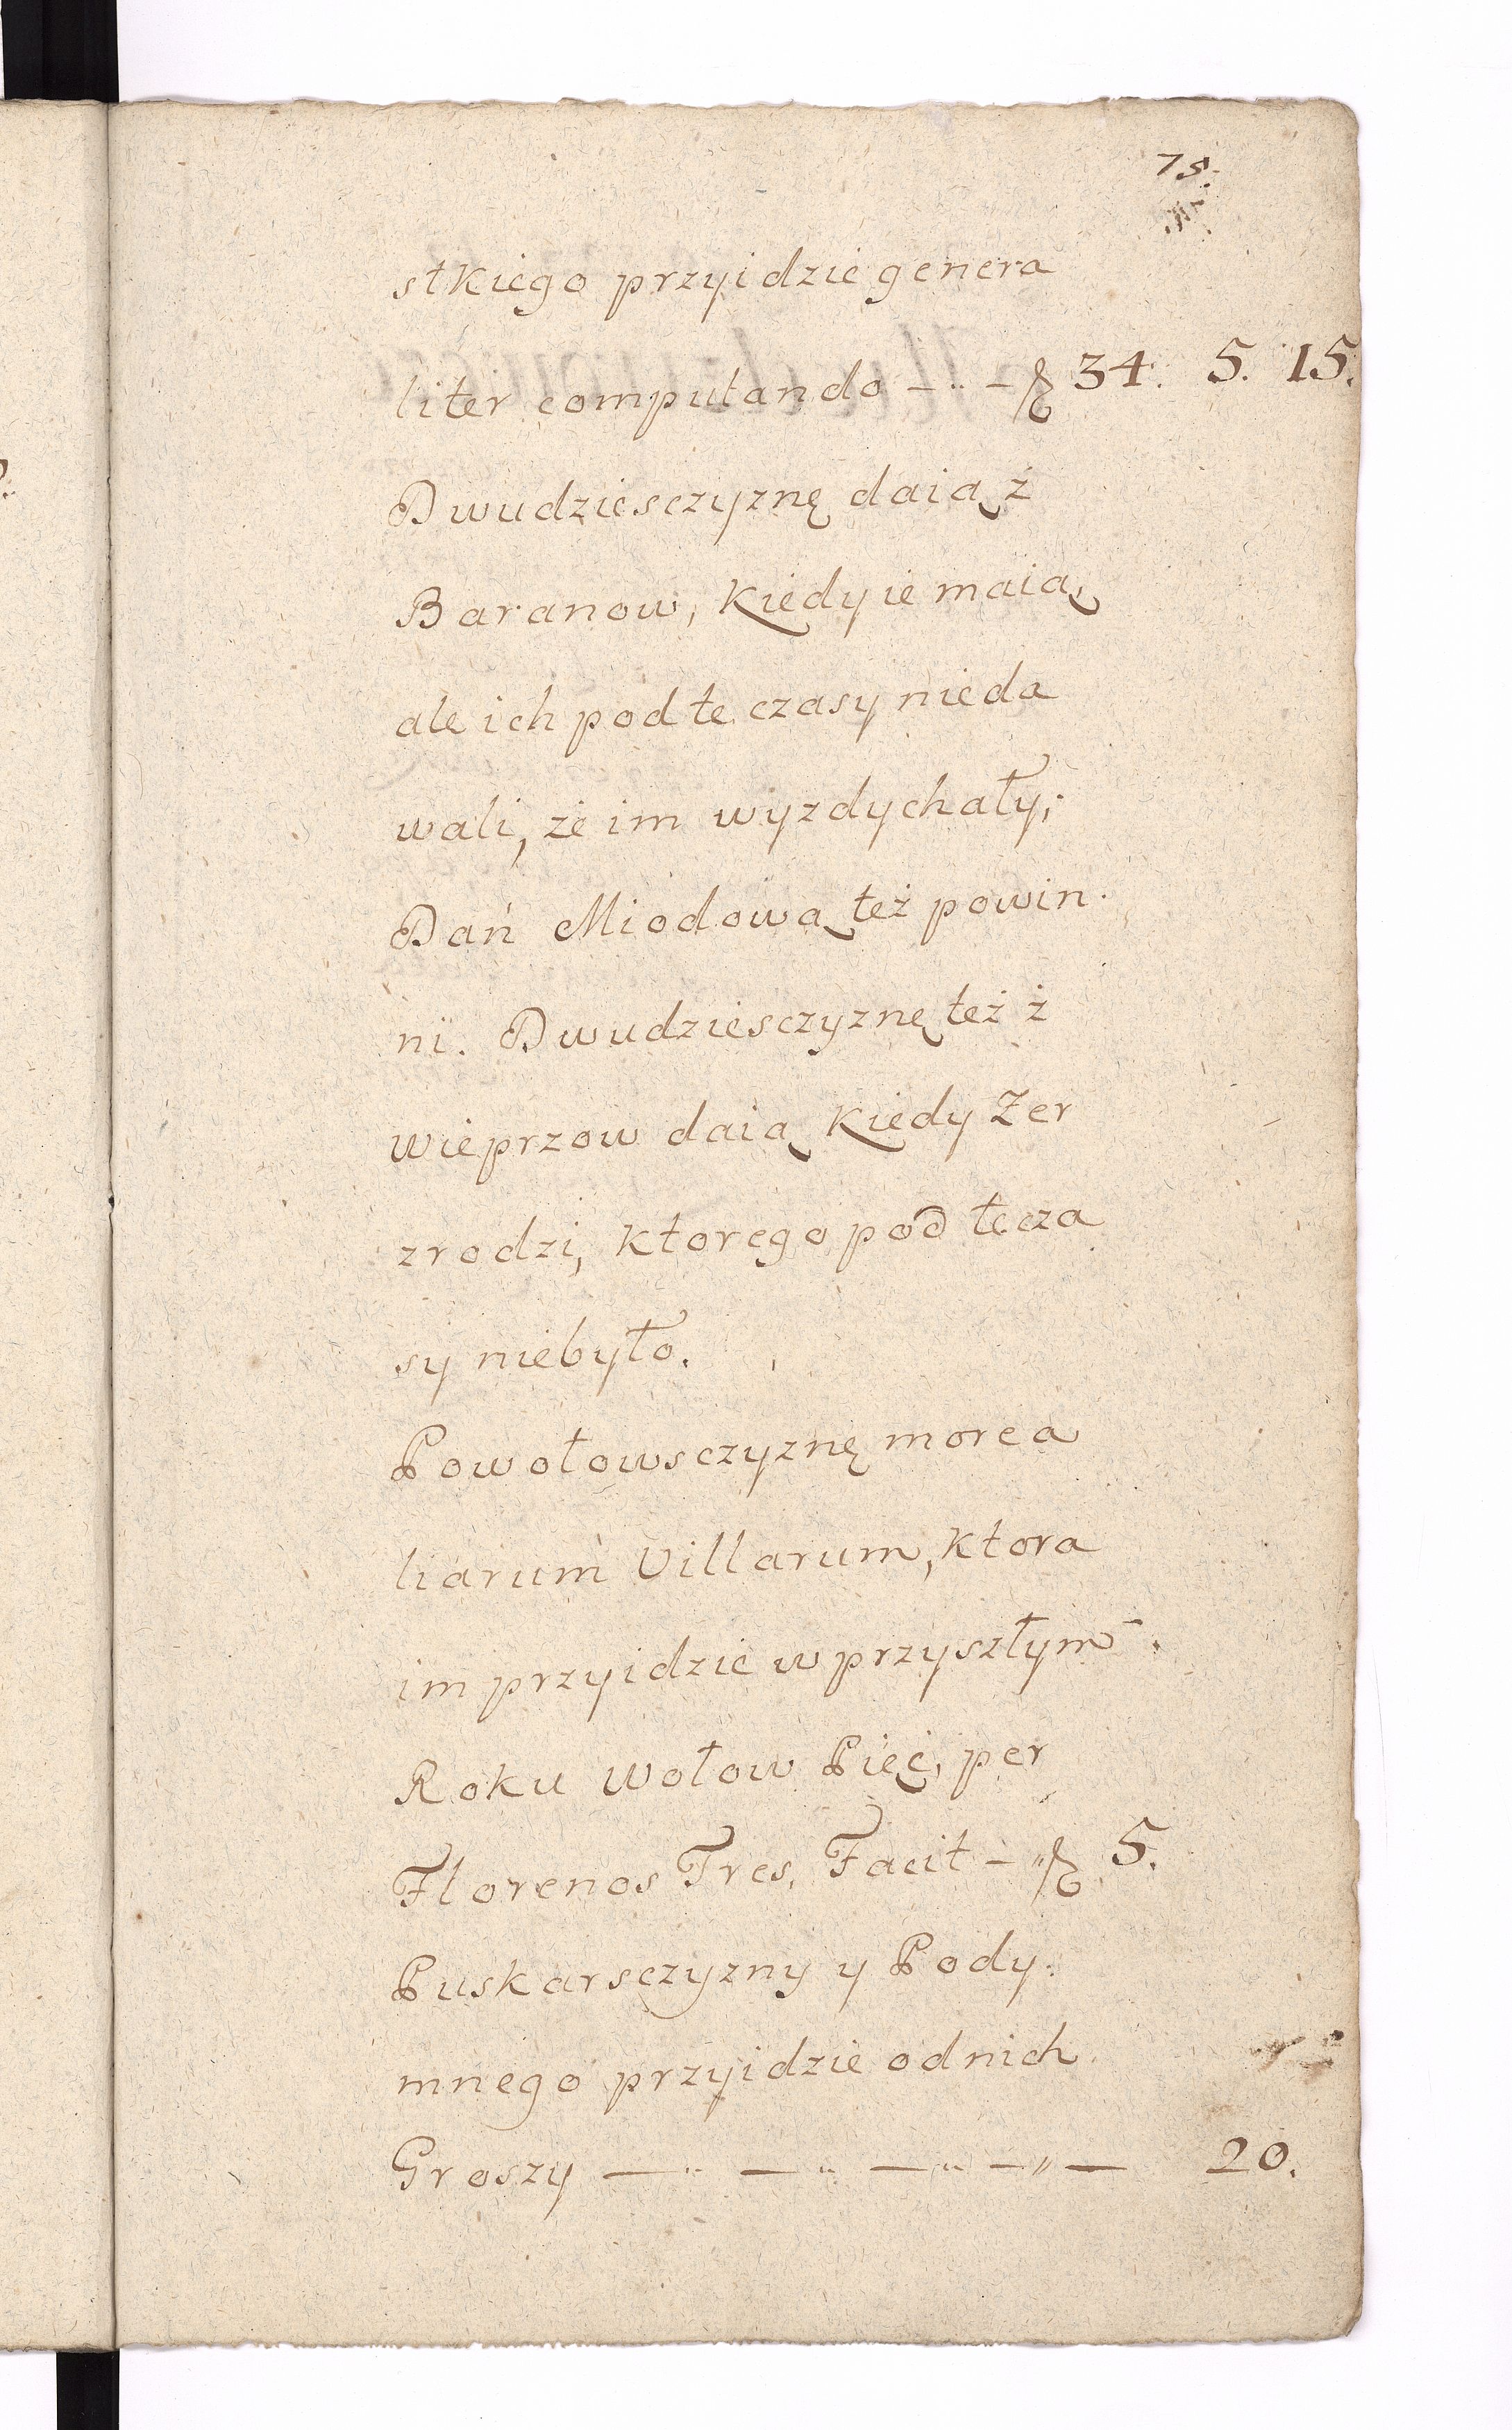 75.
stkiego przyidzie genera
liter computando — " — 34. 5. 15.
Dwudziesczyznę daią ż
Baranow, Kiedy ie maią,
ale ich pod te czasy nieda
wali, że im wyzdychały;
Dań Miodową też powin
ni. Dwudziesczyznę też ż
wieprzow daią Kiedy Zer
zrodzi, ktorego pod te cza
sy niebyło.
Powołowsczyznę more a
liarum Villarum, ktora
im przyidzie w przyszłym
Roku Wołow Pięć, per
Florenos Tres, Facit — " 5.
Puskarsczyzny y Pody
mnego przyidzie od nich
Groszy — " — " — " — " — 20.